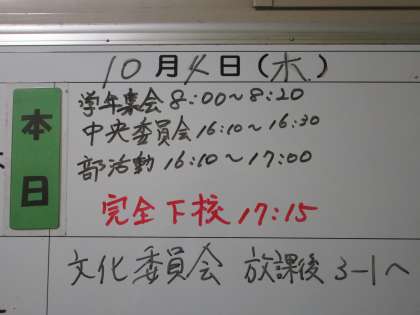 10月4日(木)
本日
学年集会 8:00〜8:20
中央委員会 16:10〜16:30
部活動 16:10〜17:00
完全下校 17:15
文化委員会 放課後 3-1へ